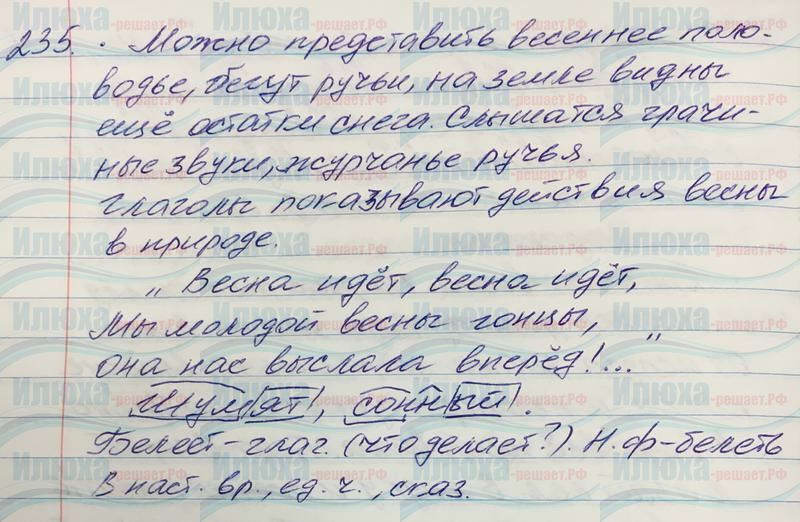 235. · Можно представить весеннее поло-
водье, бегут ручьи, на земле видны
ещё остатки снега. Слышатся грачи-
ные звуки, журчанье ручья.
Глаголы показывают действия весны
в природе.
„ Весна идёт, весна идёт,
Мы молодой весны гонцы,
она нас выслала вперёд!... "
Шумят, сонный.
Белеет - глаг. (что делает?). Н.ф - белеть
В наст. вр., ед. ч., сказ.
Илюха-решает.РФ